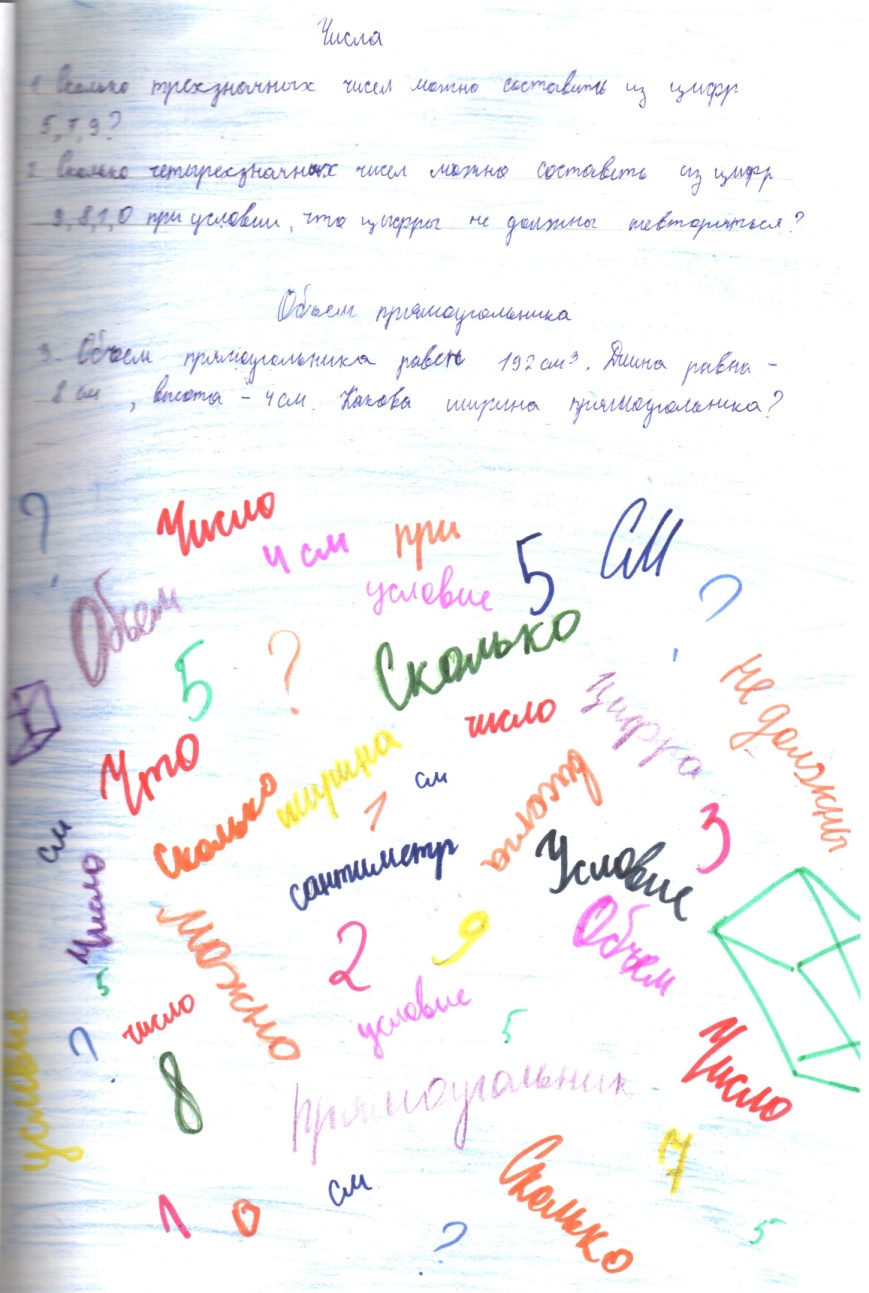 Числа
1 Сколько трехзначных чисел можно составить из цифр
5, 7, 9?
2 Сколько четырехзначных чисел можно составить из цифр
9, 8, 1, 0 при условии, что цыфры не должны повторяться?
Объем прямоугольника
3. Объем прямоугольника равен 192 см³. Длина равна -
8 см, высота - 4 см. Какова ширина прямоугольника?
?
Число
4 см
при
условие
5
СМ
?
Объем
5
?
Сколько
не должны
Цифра
число
Что
ширина
см
1
высота
Сколько
3
см
сантиметр
Условие
Число
Можно
2
9
Объем
5
число
условие
5
?
условие
8
Прямоугольник
Число
7
Сколько
1
0
см
?
5